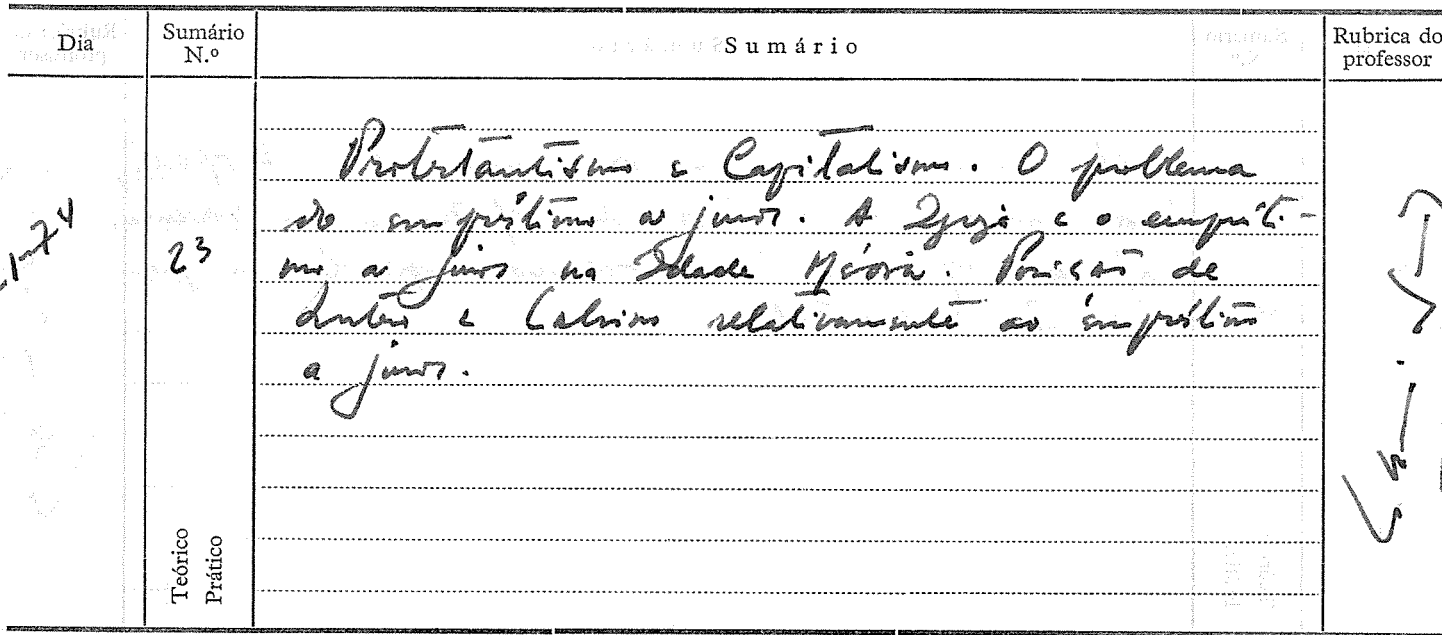 Dia Sumário N.º Sumário Rubrica do professor
1-74 23
Protestantismo e Capitalismo. O problema
do empréstimo a juros. A Igreja e o emprésti-
mo a juros na Idade Média. Posição de
Lutero e Calvino relativamente ao empréstimo
a juros.
Teórico
Prático